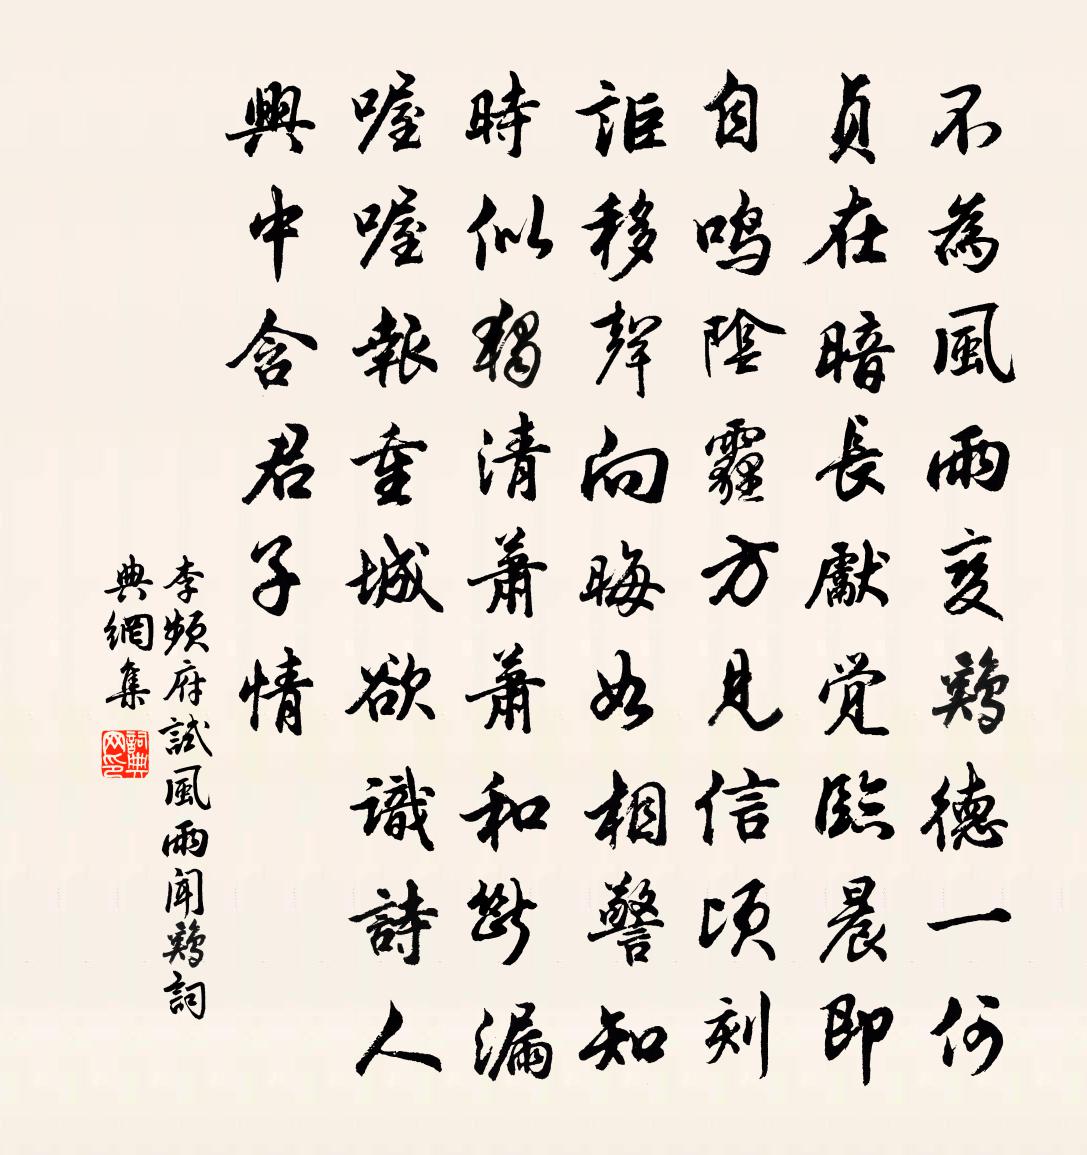 不為風雨變鷄德一何
貞在暗長獻覺臨晨即
自鳴陰霾方見信頃刻
詎移聲向晦如相警知
時似獨清蕭蕭和斷漏
喔喔報重城欲識詩人
興中含君子情
李頻府試風雨聞鷄詞
典網集
詞典网印